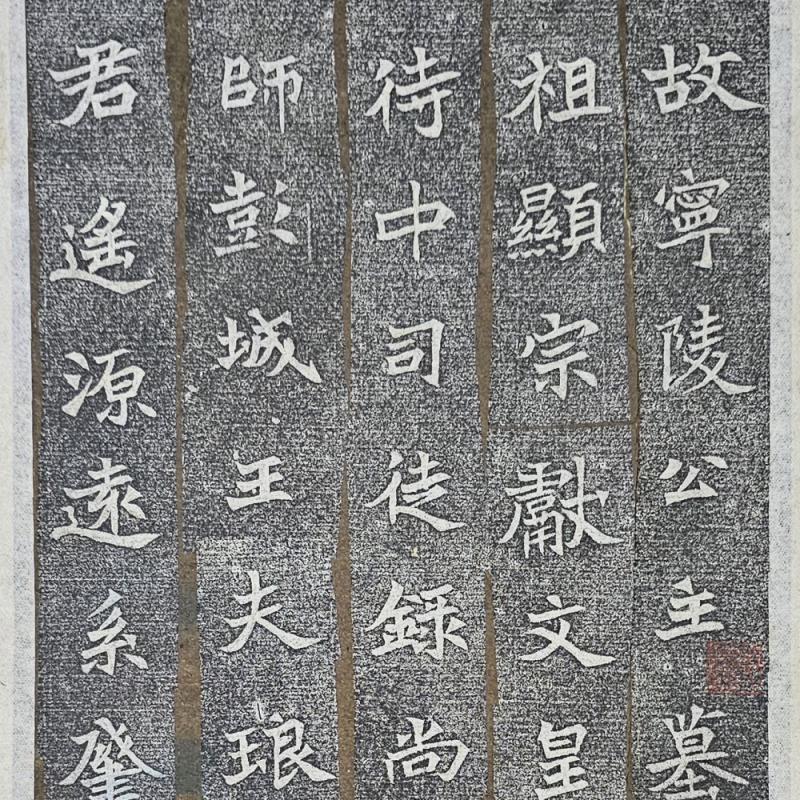 故寧陵公主墓
祖顯宗獻文皇
待中司徒錄尚
師彭城王夫琅
君遙源遠系肇